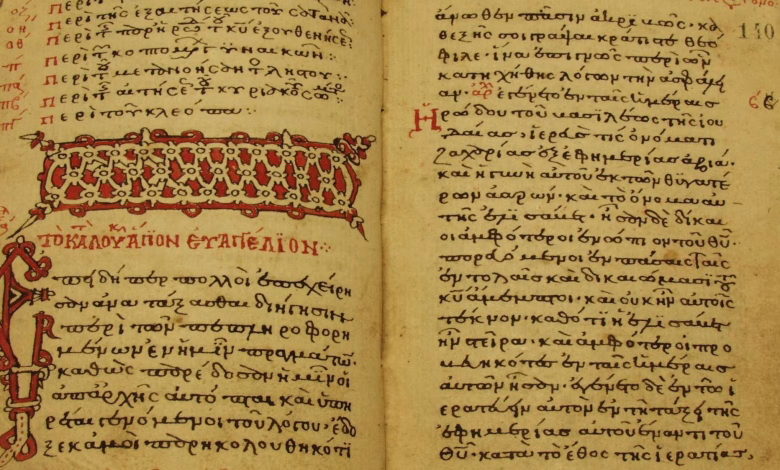 περὶ τῆς
περὶ τῆς
περὶ τ κοπτομ γυναικῶν:
περὶ τ μετανοήσ λῃστοῦ:
περὶ τ αἰτήσ τ κυριακοῦ σω:
περὶ τοῦ κλεόπα:
ΤΟ ΚΑΤ ΛΟΥΚ ΑΓΙΟΝ ΕΥΑΓΓΕΛΙΟΝ:
Ἐπειδήπερ πολλοὶ ἐπεχείρη
σαν ἀνατάξασθαι διήγησιν
περὶ τῶν πεπληροφορη
μένων ἐν ἡμῖν πραγμάτων·
καθὼς παρέδοσαν ἡμῖν οἱ
ἀπαρχῆς αὐτόπται καὶ ὑπη
ρέται γενόμενοι τοῦ λόγου· ἔδο
ξε κἀμοὶ παρηκολουθηκότι
ἄνωθεν πᾶσιν ἀκριβῶς· κα
θεξῆς σοι γράψαι κράτιστε θεό
φιλε· ἵνα ἐπιγνῷς περὶ ὧν
κατηχήθης λόγων τὴν ἀσφάλει
αν· ἀρχ ἐγένετο ἐν ταῖς ἡμέραις
ἡρώδου τοῦ βασιλέως τῆς ἰου
δαίας, ἱερεύς τις ὀνόματι
ζαχαρίας ἐξ ἐφημερίας ἀβιά·
καὶ ἡ γυνὴ αὐτοῦ ἐκ τῶν θυγατέ
ρων ἀαρών· καὶ τὸ ὄνομα αὐ
τῆς ἐλισάβετ· ἦσαν δὲ δίκαι
οι ἀμφότεροι ἐνώπιον τοῦ θυ·
πορευόμενοι ἐν πάσαις ταῖς
ἐντολαῖς καὶ δικαιώμασι τοῦ
κυ ἄμεμπτοι· καὶ οὐκ ἦν αὐτοῖς
τέκνον· καθότι ἡ ἐλισάβετ
ἦν στεῖρα· καὶ ἀμφότεροι προ
βεβηκότες ἐν ταῖς ἡμέραις
αὐτῶν ἦσαν· ἐγένετο δὲ ἐν τῷ ἱ
ερατεύειν αὐτὸν ἐν τῇ τάξει τῆς
ἐφημερίας αὐτοῦ ἔναντι τοῦ
θυ· κατὰ τὸ ἔθος τῆς ἱερατείας,
140